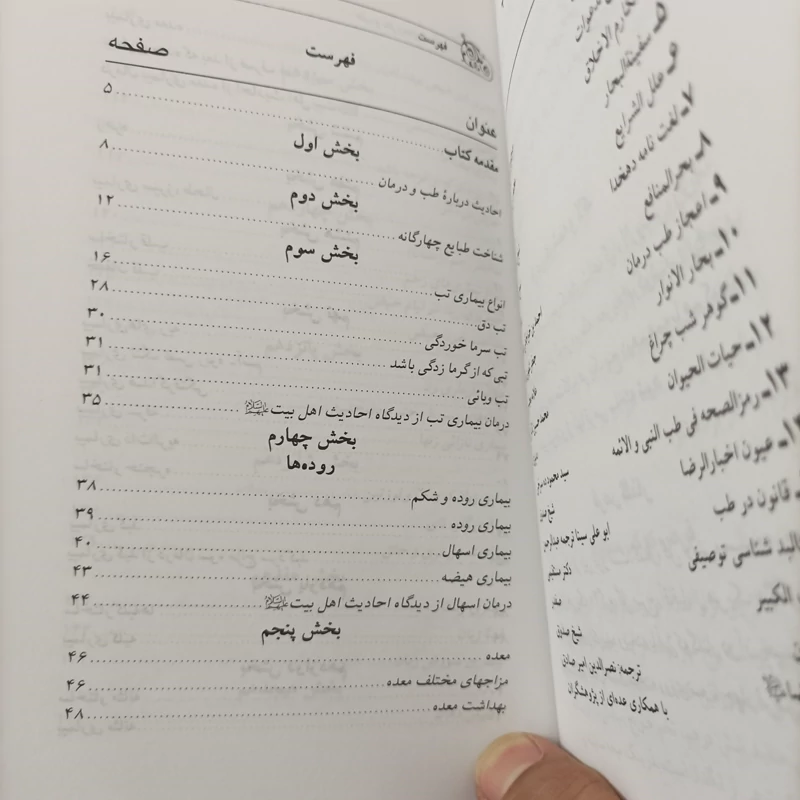 فهرست
فهرست
عنوان
صفحه
مقدمه کتاب ..... ۵
بخش اول
احادیث دربارهٔ طب و درمان ..... ۸
بخش دوم
شناخت طبایع چهارگانه ..... ۱۲
بخش سوم
انواع بیماری تب ..... ۱۶
تب دق ..... ۲۸
تب سرما خوردگی ..... ۳۰
تبی که از گرما زدگی باشد ..... ۳۱
تب وبائی ..... ۳۱
درمان بیماری تب از دیدگاه احادیث اهل بیت ..... ۳۵
بخش چهارم
روده‌ها
بیماری روده و شکم ..... ۳۸
بیماری روده ..... ۳۹
بیماری اسهال ..... ۴۰
بیماری هیضه ..... ۴۳
درمان اسهال از دیدگاه احادیث اهل بیت ..... ۴۴
بخش پنجم
معده ..... ۴۶
مزاجهای مختلف معده ..... ۴۶
بهداشت معده ..... ۴۸
مکارم الاخلاق
سفینةالبحار
علل الشرایع
۷ـ لغت نامه دهخدا
۸ـ بحرالمنافع
۹ـ اعجاز طب درمان
۱۰ـ بحار الانوار
۱۱ـ گوهر شب چراغ
۱۲ـ حیات الحیوان
۱۳ـ رمزالصحه فی طب النبی و الائمه
عیون اخبارالرضا
قانون در طب
ابو علی سینا ترجمه
شناسی توصیفی
دکتر
الکبیر
شیخ صدوق
ترجمه: نصرالدین امیر صادقی
با همکاری عده‌ای از پژوهشگران